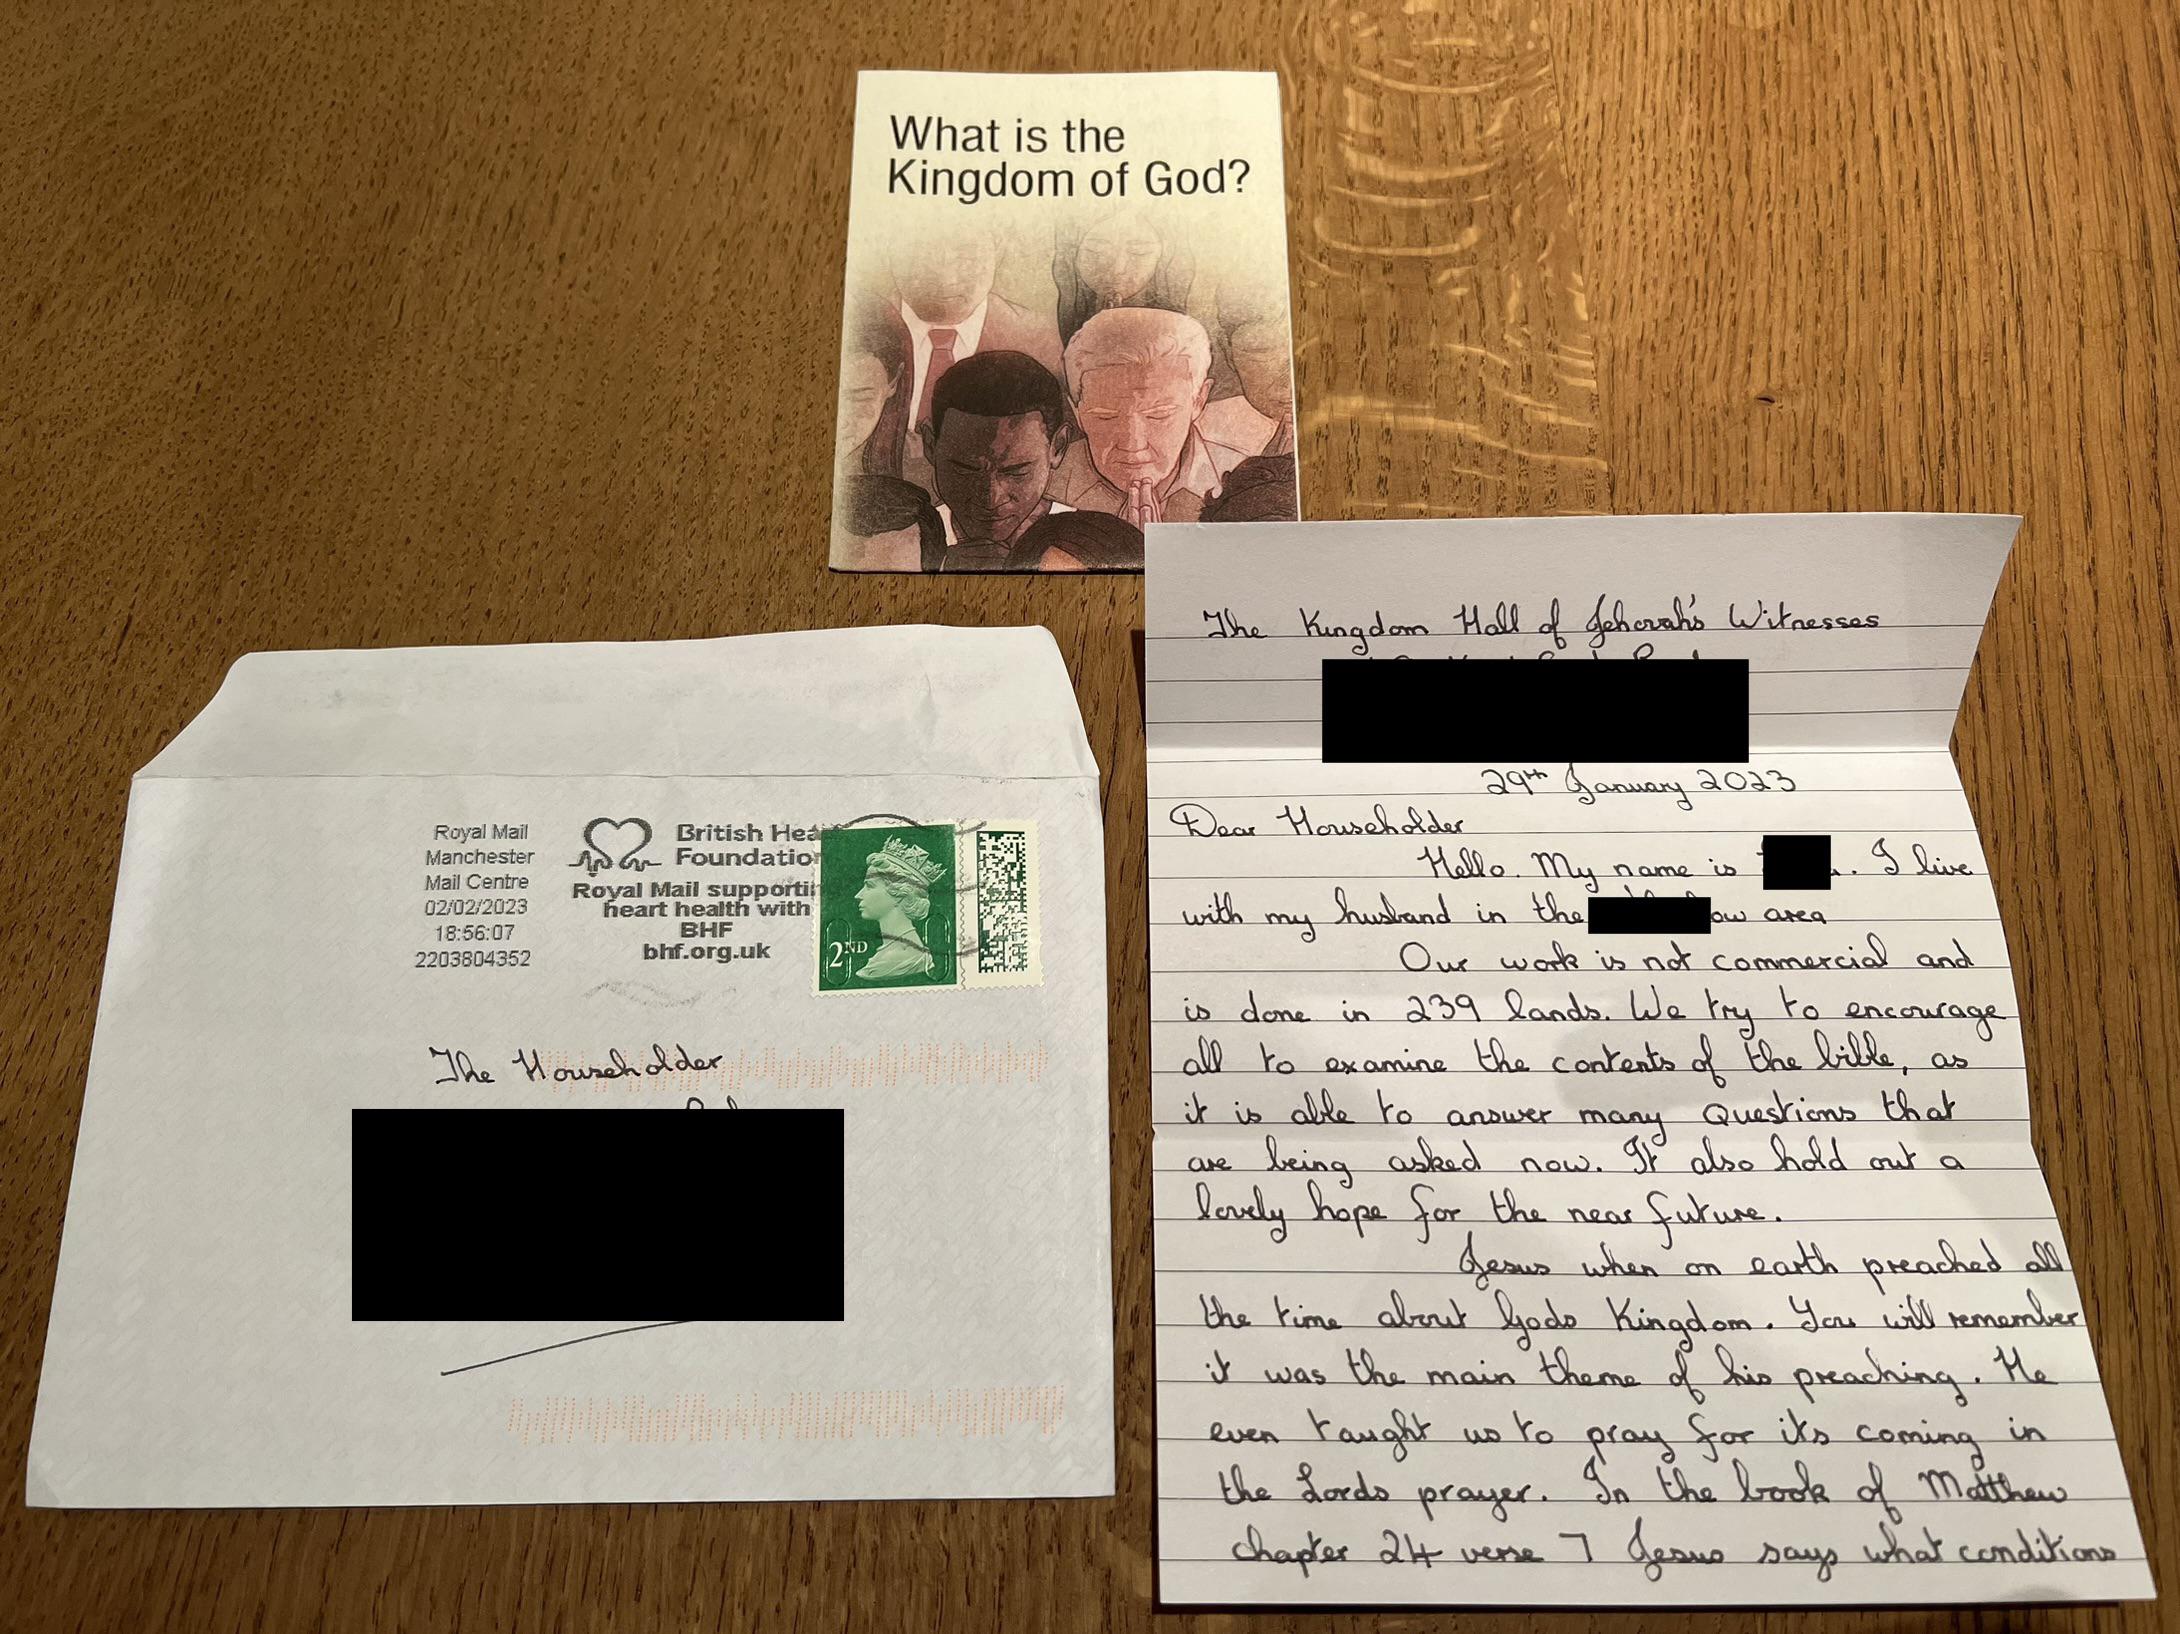 What is the
Kingdom of God?
Royal Mail
Manchester
Mail Centre
02/02/2023
18:56:07
2203804352
British Hea
Foundation
Royal Mail supporti
heart health with
BHF
bhf.org.uk
2ND
The Householder
The Kingdom Hall of Jehovah's Witnesses
29th January 2023
Dear Householder
Hello. My name is . I live
with my husband in the ow area
Our work is not commercial and
is done in 239 lands. We try to encourage
all to examine the contents of the bible, as
it is able to answer many Questions that
are being asked now. It also hold out a
lovely hope for the near future.
Jesus when on earth preached all
the time about Gods Kingdom. You will remember
it was the main theme of his preaching. He
even taught us to pray for its coming in
the Lords prayer. In the book of Matthew
chapter 24 verse 7 Jesus says what conditions